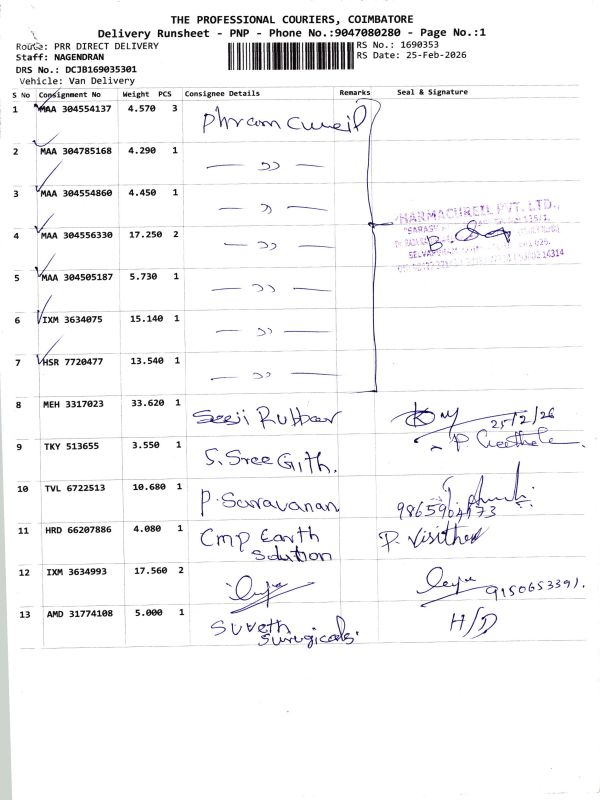 THE PROFESSIONAL COURIERS, COIMBATORE
Delivery Runsheet - PNP - Phone No.:9047080280 - Page No.:1
Route: PRR DIRECT DELIVERY
RS No.: 1690353
Staff: NAGENDRAN
RS Date: 25-Feb-2026
DRS No.: DCJB169035301
Vehicle: Van Delivery
S No Consignment No Weight PCS Consignee Details Remarks Seal & Signature
1 MAA 304554137 4.570 3
2 MAA 304785168 4.290 1 — ,, —
3 MAA 304554860 4.450 1 — ,, —
4 MAA 304556330 17.250 2 — ,, —
5 MAA 304505187 5.730 1 — ,, —
6 IXM 3634075 15.140 1 — ,, —
7 HSR 7720477 13.540 1 — ,, —
8 MEH 3317023 33.620 1 25/2/26
9 TKY 513655 3.550 1 S. Sree Gith.
10 TVL 6722513 10.680 1 P. Saravanan
11 HRD 66207886 4.080 1 Cmp Earth
Solution
12 IXM 3634993 17.560 2 9150653391.
13 AMD 31774108 5.000 1 H/D